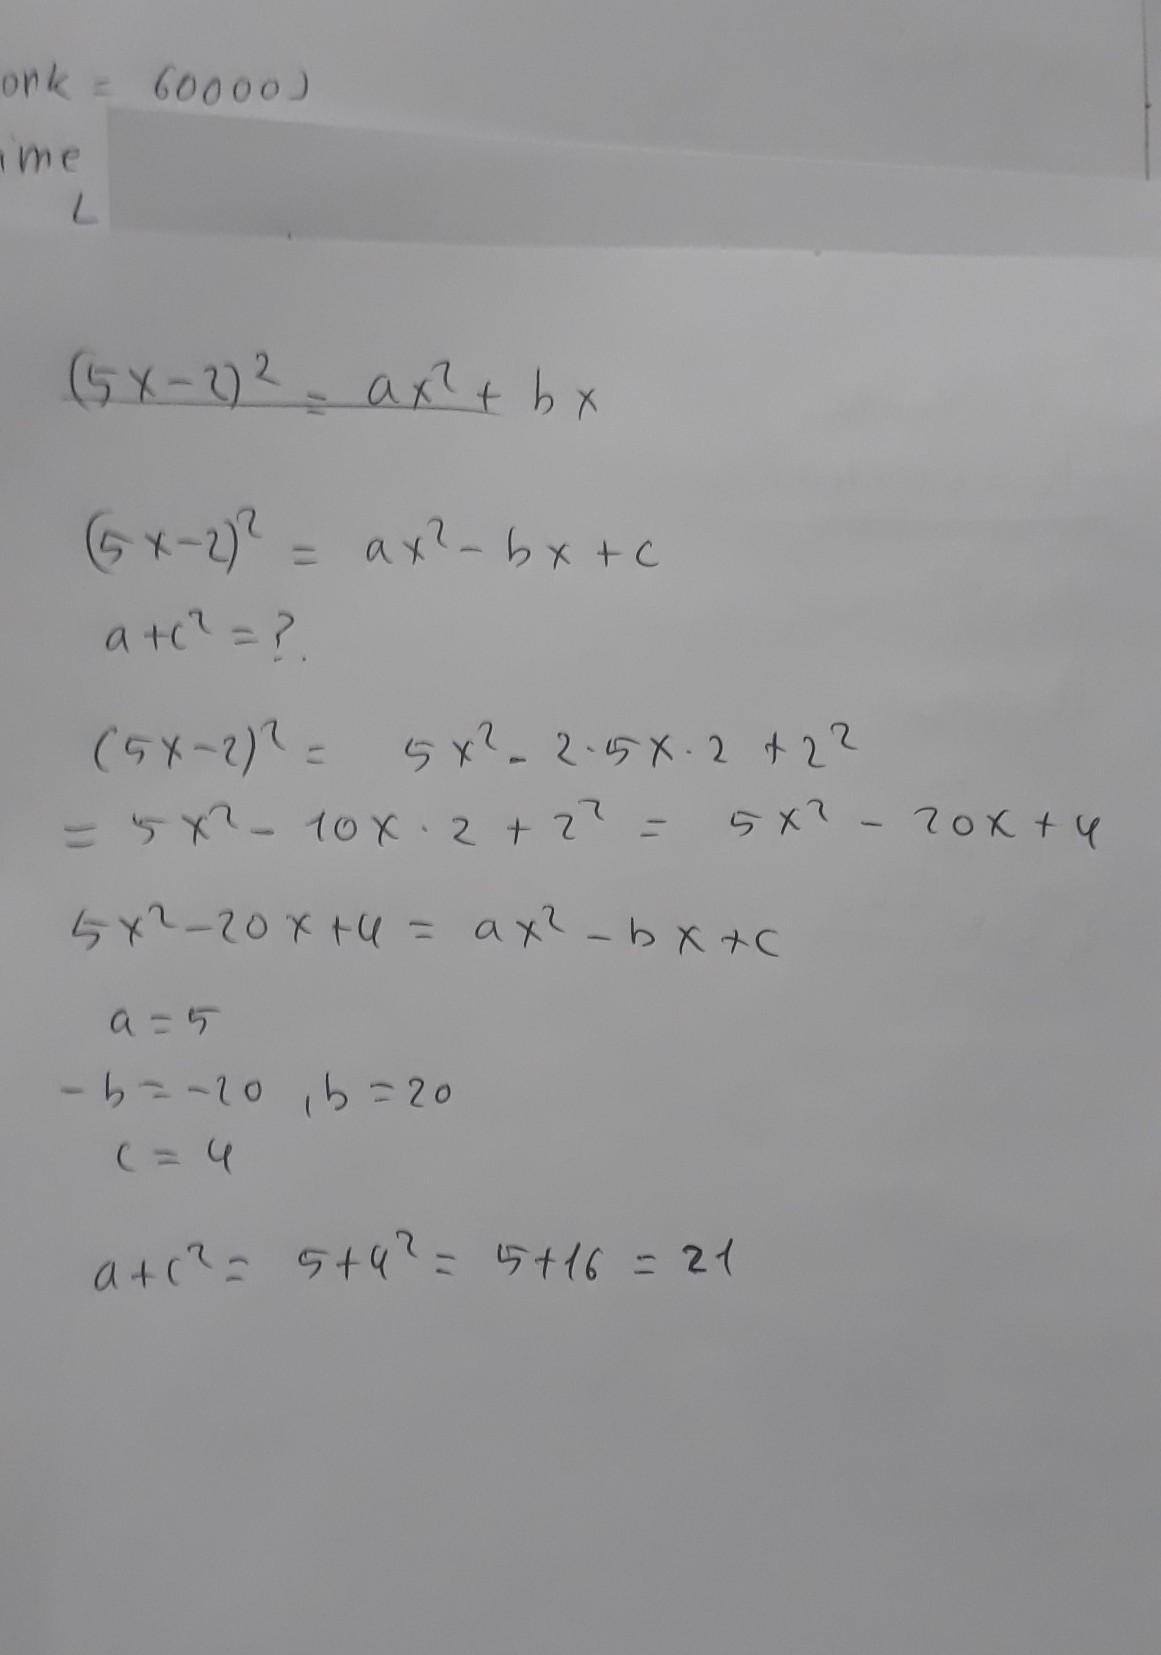 onk = 60000J
ime
L
(5x-2)² = ax² + bx
(5x-2)² = ax² - bx + c
a+c² = ?.
(5x-2)² = 5x² - 2·5x·2 + 2²
= 5x² - 10x·2 + 2² = 5x² - 20x + 4
5x² - 20x + 4 = ax² - bx + c
a = 5
-b = -20 , b = 20
c = 4
a+c² = 5+4² = 5+16 = 21